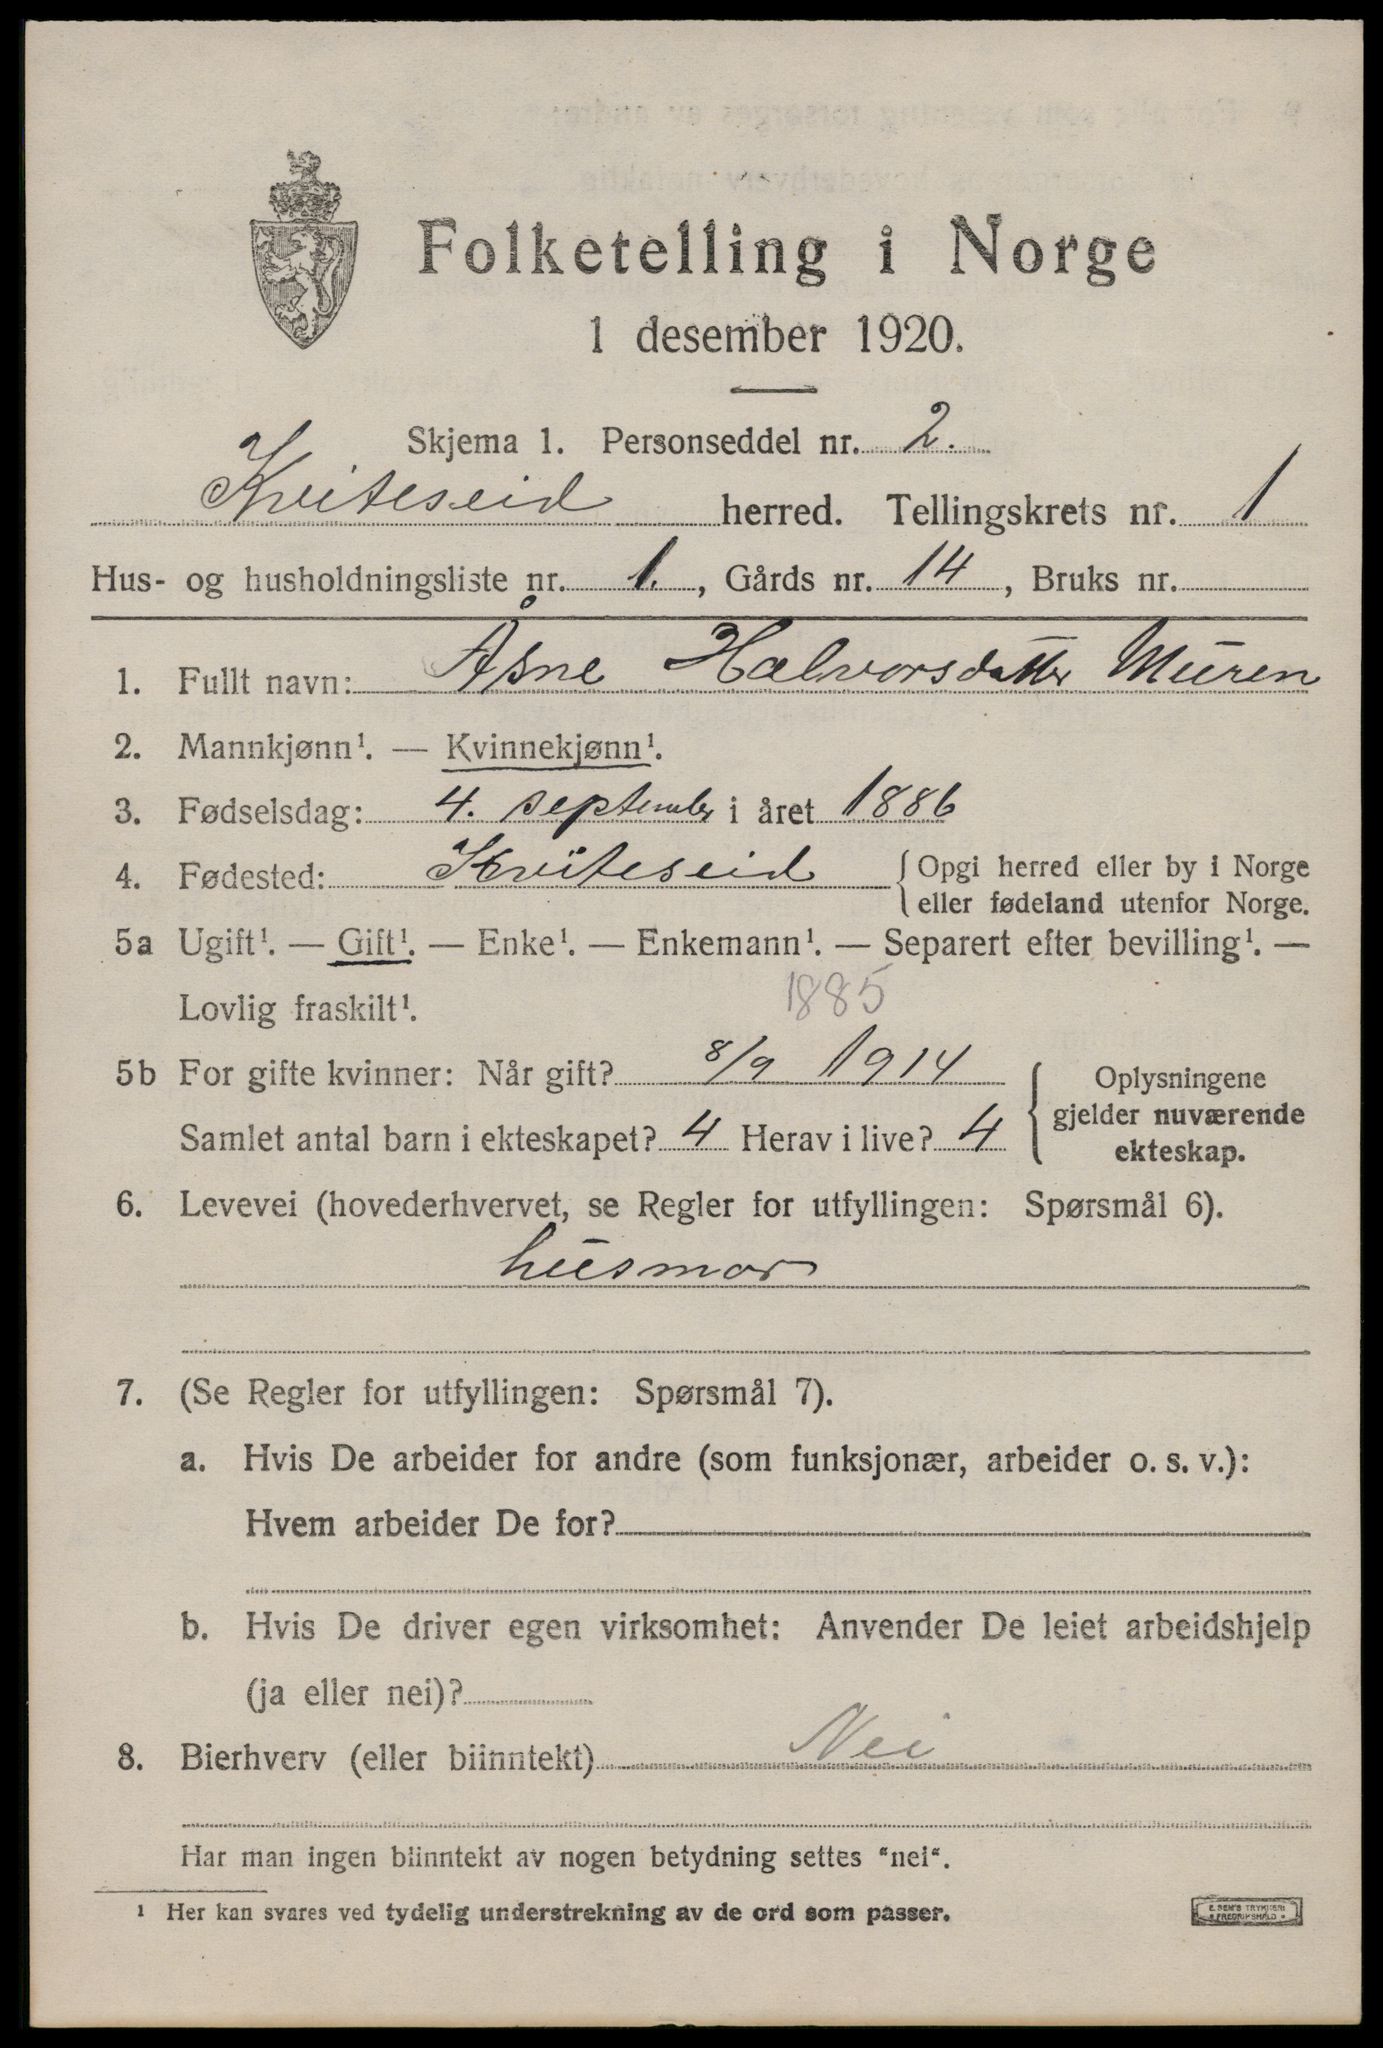 Folketelling i Norge
1 desember 1920.
Skjema 1. Personseddel nr. 2.
Kviteseid herred. Tellingskrets nr. 1
Hus- og husholdningsliste nr. 1., Gårds nr. 14, Bruks nr.
1. Fullt navn: Åsne Halvorsdatter Muren
2. Mannkjønn¹. — Kvinnekjønn¹.
3. Fødselsdag: 4. september i året 1886
4. Fødested: Kviteseid { Opgi herred eller by i Norge
eller fødeland utenfor Norge.
5a Ugift¹. — Gift¹. — Enke¹. — Enkemann¹. — Separert efter bevilling¹. —
Lovlig fraskilt¹. 1885
5b For gifte kvinner: Når gift? 8/9 1914 { Oplysningene
gjelder nuværende
Samlet antal barn i ekteskapet? 4 Herav i live? 4
ekteskap.
6. Levevei (hovederhvervet, se Regler for utfyllingen: Spørsmål 6).
husmor
7. (Se Regler for utfyllingen: Spørsmål 7).
a. Hvis De arbeider for andre (som funksjonær, arbeider o. s. v.):
Hvem arbeider De for?
b. Hvis De driver egen virksomhet: Anvender De leiet arbeidshjelp
(ja eller nei)?
8. Bierhverv (eller biinntekt) Nei
Har man ingen biinntekt av nogen betydning settes "nei".
¹ Her kan svares ved tydelig understrekning av de ord som passer.
E. SEM'S TRYKKERI
FREDRIKSHALD